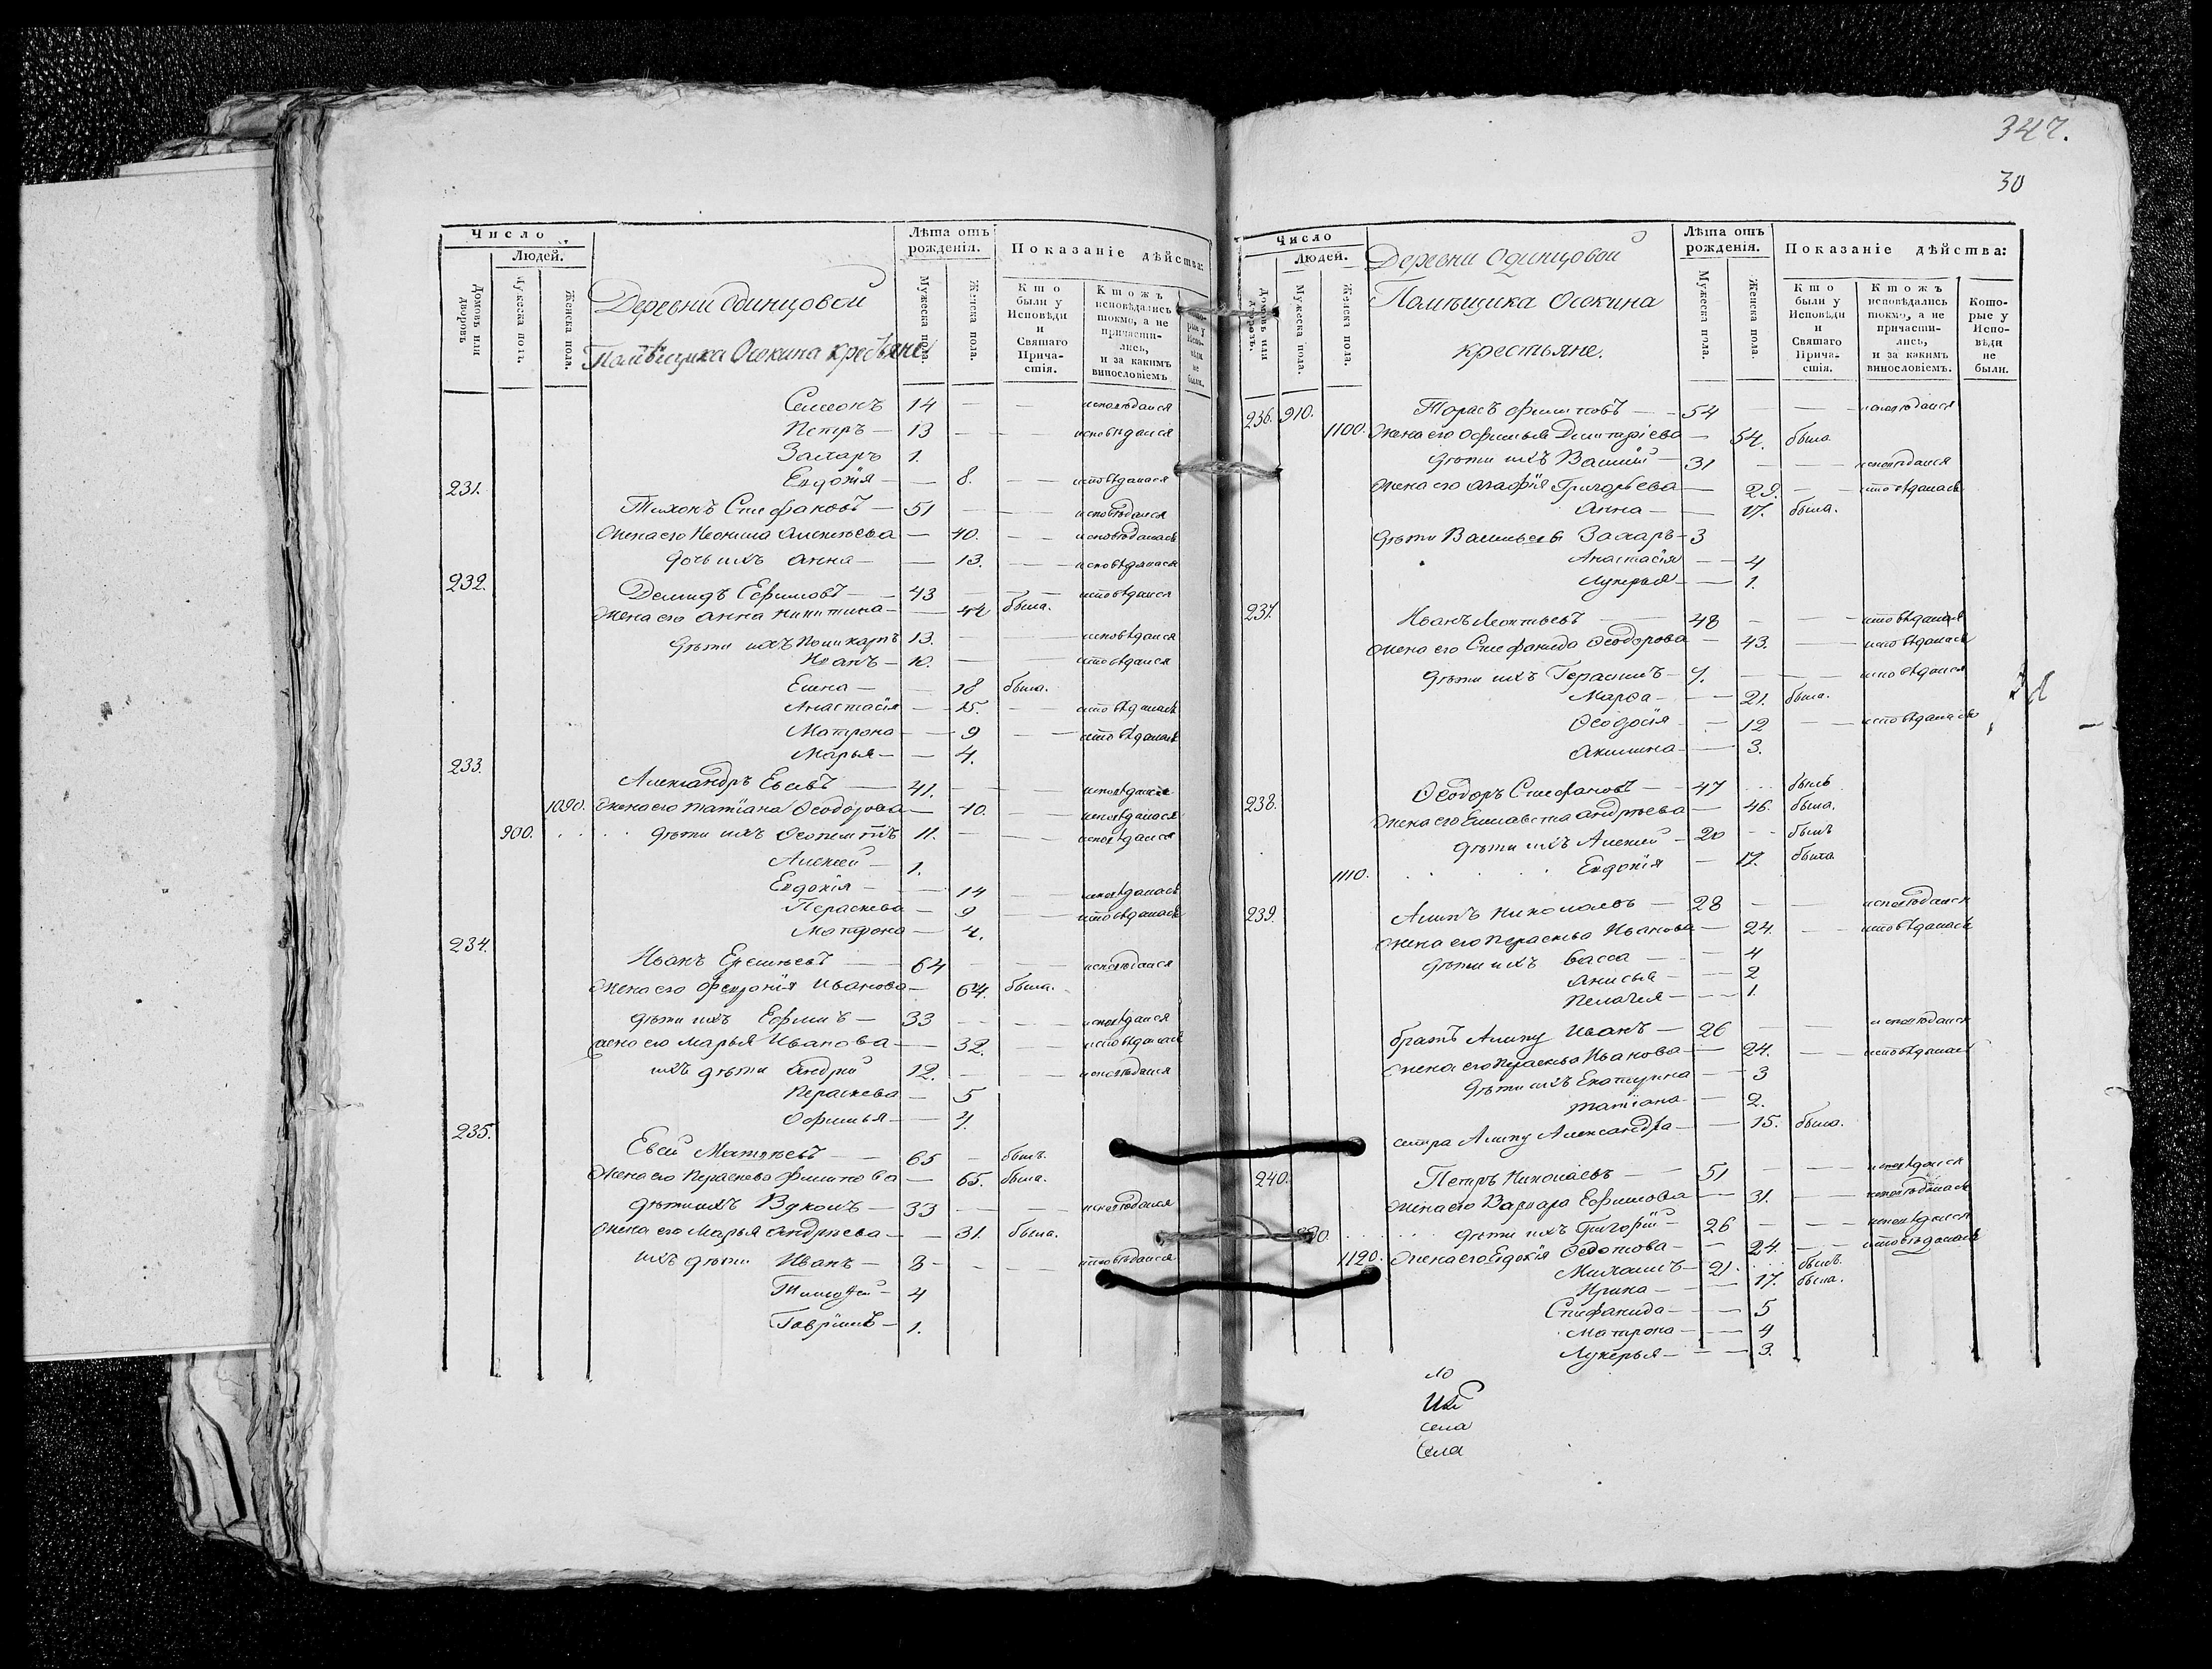 Число
Людей.
Домовъ или дворовъ
Мужеска пола.
Женска пола.
Деревни Одинцовой
Помѣщика Осокина крестьяне
Лѣта отъ рожденія.
Мужеска пола.
Женска пола.
Показаніе дѣйства:
Кто были у Исповѣди и Святаго Причастія.
Ктожъ исповѣдались токмо, а не причастились, и за какимъ винословіемъ
Семеонъ 14 — — исповѣдался
Петръ — 13 — — исповѣдался
Захаръ 1.
Евдокія — — 8. — — исповѣдалася
231.
Тихонъ Стефановъ — 51 — — исповѣдался
Жена его Неонила Алексѣева — 40. — — исповѣдалась
дочь ихъ Анна — — 13. — — исповѣдалася
232.
Демидъ Ефимовъ — 43 — — исповѣдался
Жена его Анна Никитина — 42 была.
дѣти ихъ Поликарпъ 13. — — исповѣдался
Иванъ — 10. — — исповѣдался
Елена — — 18 была.
Анастасія — — 15. — — исповѣдалась
Матрона — — 9 — — исповѣдалась
Марья — — 4.
233.
Александръ Евсевъ — 41. — — исповѣдался
1090. Жена его Татіана Ѳеодорова — 40. — исповѣдалася
900. дѣти ихъ Ѳеопемптъ 11. — — исповѣдался
Алексѣй — 1.
Евдокія — — 14 — исповѣдалась
Параскева — 9 — — исповѣдалась
Матрона — 4.
234.
Иванъ Еремѣевъ — 64 — — исповѣдался
Жена его Февронія Иванова — 64. была.
дѣти ихъ Ефимъ — 33 — — исповѣдался
жена его Марья Иванова — 32. — исповѣдалась
ихъ дѣти Андрей 12. — — исповѣдался
Параскева — 5
Офимья — — 4.
235.
Евсей Матвѣевъ — 65 — былъ.
Жена его Параскева Филипова — 65. была.
дѣти ихъ Вуколъ — 33 — — исповѣдался
Жена его Марья Андрѣева — — 31. была.
ихъ дѣти Иванъ — 8 — — исповѣдался
Тимоѳей — 4
Гавріилъ — 1.
347.
30
Число
Людей.
Домовъ или дворовъ.
Мужеска пола.
Женска пола.
Деревни Одинцовой
Помѣщика Осокина
крестьяне.
Лѣта отъ рожденія.
Мужеска пола.
Женска пола.
Показаніе дѣйства:
Кто были у Исповѣди и Святаго Причастія.
Ктожъ исповѣдались токмо, а не причастились, и за какимъ винословіемъ.
Которые у Исповѣди не были.
236. 910. Тарасъ Филиповъ — 54 — — исповѣдался
1100. Жена его Офимья Дмитріева — 54. была.
дѣти ихъ Василій — 31 — — исповѣдался
Жена его Агафія Григорьева — 29. — исповѣдалась
Анна — — 17. была.
дѣти Васильевы Захаръ — 3
Анастасія — — 4
Лукерья — — 1.
237. Иванъ Леонтьевъ — 48 — — исповѣдался
Жена его Стефанида Ѳеодорова — 43. — исповѣдалась
дѣти ихъ Герасимъ — 7. — — исповѣдался
Марѳа — — 21. была.
Ѳеодосія — 12 — — исповѣдалась
Акилина — — 3.
238. Ѳеодоръ Стефановъ — 47 былъ
Жена его Елисавета Андрѣева — 46. была.
дѣти ихъ Алексѣй — 20 — былъ
1110. Евдокія — 17. была.
239. Алипъ Николаевъ — 28 — — исповѣдался
Жена его Параскева Иванова — 24. — исповѣдалась
дѣти ихъ Васса — — 4
Анисья — — 2
Пелагея — — 1.
братъ Алипу Иванъ — 26 — — исповѣдался
Жена его Параскева Иванова — 24. — исповѣдалась
дѣти ихъ Екатерина — — 3
Татіана — — 2.
сестра Алипу Александра — — 15. была.
240. Петръ Николаевъ — 51 — — исповѣдался
Жена его Варвара Ефимова — 31. — исповѣдалась
дѣти ихъ Григорій — 26 — — исповѣдался
1120. Жена его Евдокія Ѳедотова — 24. — исповѣдалась
Михаилъ — 21. былъ.
Ирина — — 17. была.
Стефанида — — 5
Матрона — — 4
Лукерья — — 3.
ло
села
Села